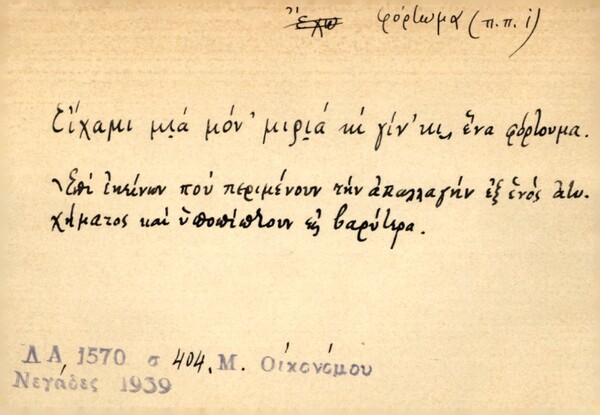 ἔχω φόρτωμα (π.π.ἱ)
Εἴχαμι μιὰ μόν' μιριά κὶ γίν'κι ἕνα φόρτουμα.
Ἐπὶ ἐκείνων πού περιμένουν τὴν ἀπαλλαγήν ἐξ ἑνός ἀτυ-
χήματος καὶ ὑποπίπτουν εἰς βαρύτερα.
Λ Α 1570 σ 404, Μ. Οἰκονόμου
Νεγάδες 1939